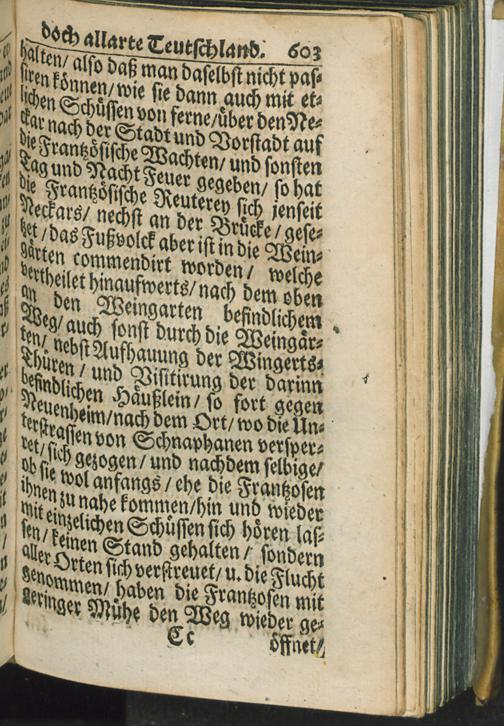 doch allarte Teutschland. 603
halten/ also daß man daselbst nicht pas-
siren können/ wie sie dann auch mit et-
lichen Schüssen von ferne/ über den Ne-
ckar nach der Stadt und Vorstadt auf
die Frantzösische Wachten/ und sonsten
Tag und Nacht Feuer gegeben/ so hat
die Frantzösische Reuterey sich jenseit
Neckars/ nechst an der Brücke/ gese-
tzet/ das Fußvolck aber ist in die Wein-
gärten commendirt worden/ welche
vertheilet hinaufwerts/ nach dem oben
an den Weingarten befindlichem
Weg/ auch sonst durch die Weingär-
ten/ nebst Aufhauung der Wingerts-
Thüren/ und Visitirung der darinn
befindlichen Häußlein/ so fort gegen
Neuenheim/ nach dem Ort/ wo die Un-
terstrassen von Schnaphanen versper-
ret/ sich gezogen/ und nachdem selbige/
ob sie wol anfangs/ ehe die Frantzosen
ihnen zu nahe kommen/ hin und wieder
mit einzelichen Schüssen sich hören las-
sen/ keinen Stand gehalten/ sondern
aller Orten sich verstreuet/ u. die Flucht
genommen/ haben die Frantzosen mit
geringer Mühe den Weg wieder ge-
Cc öffnet/